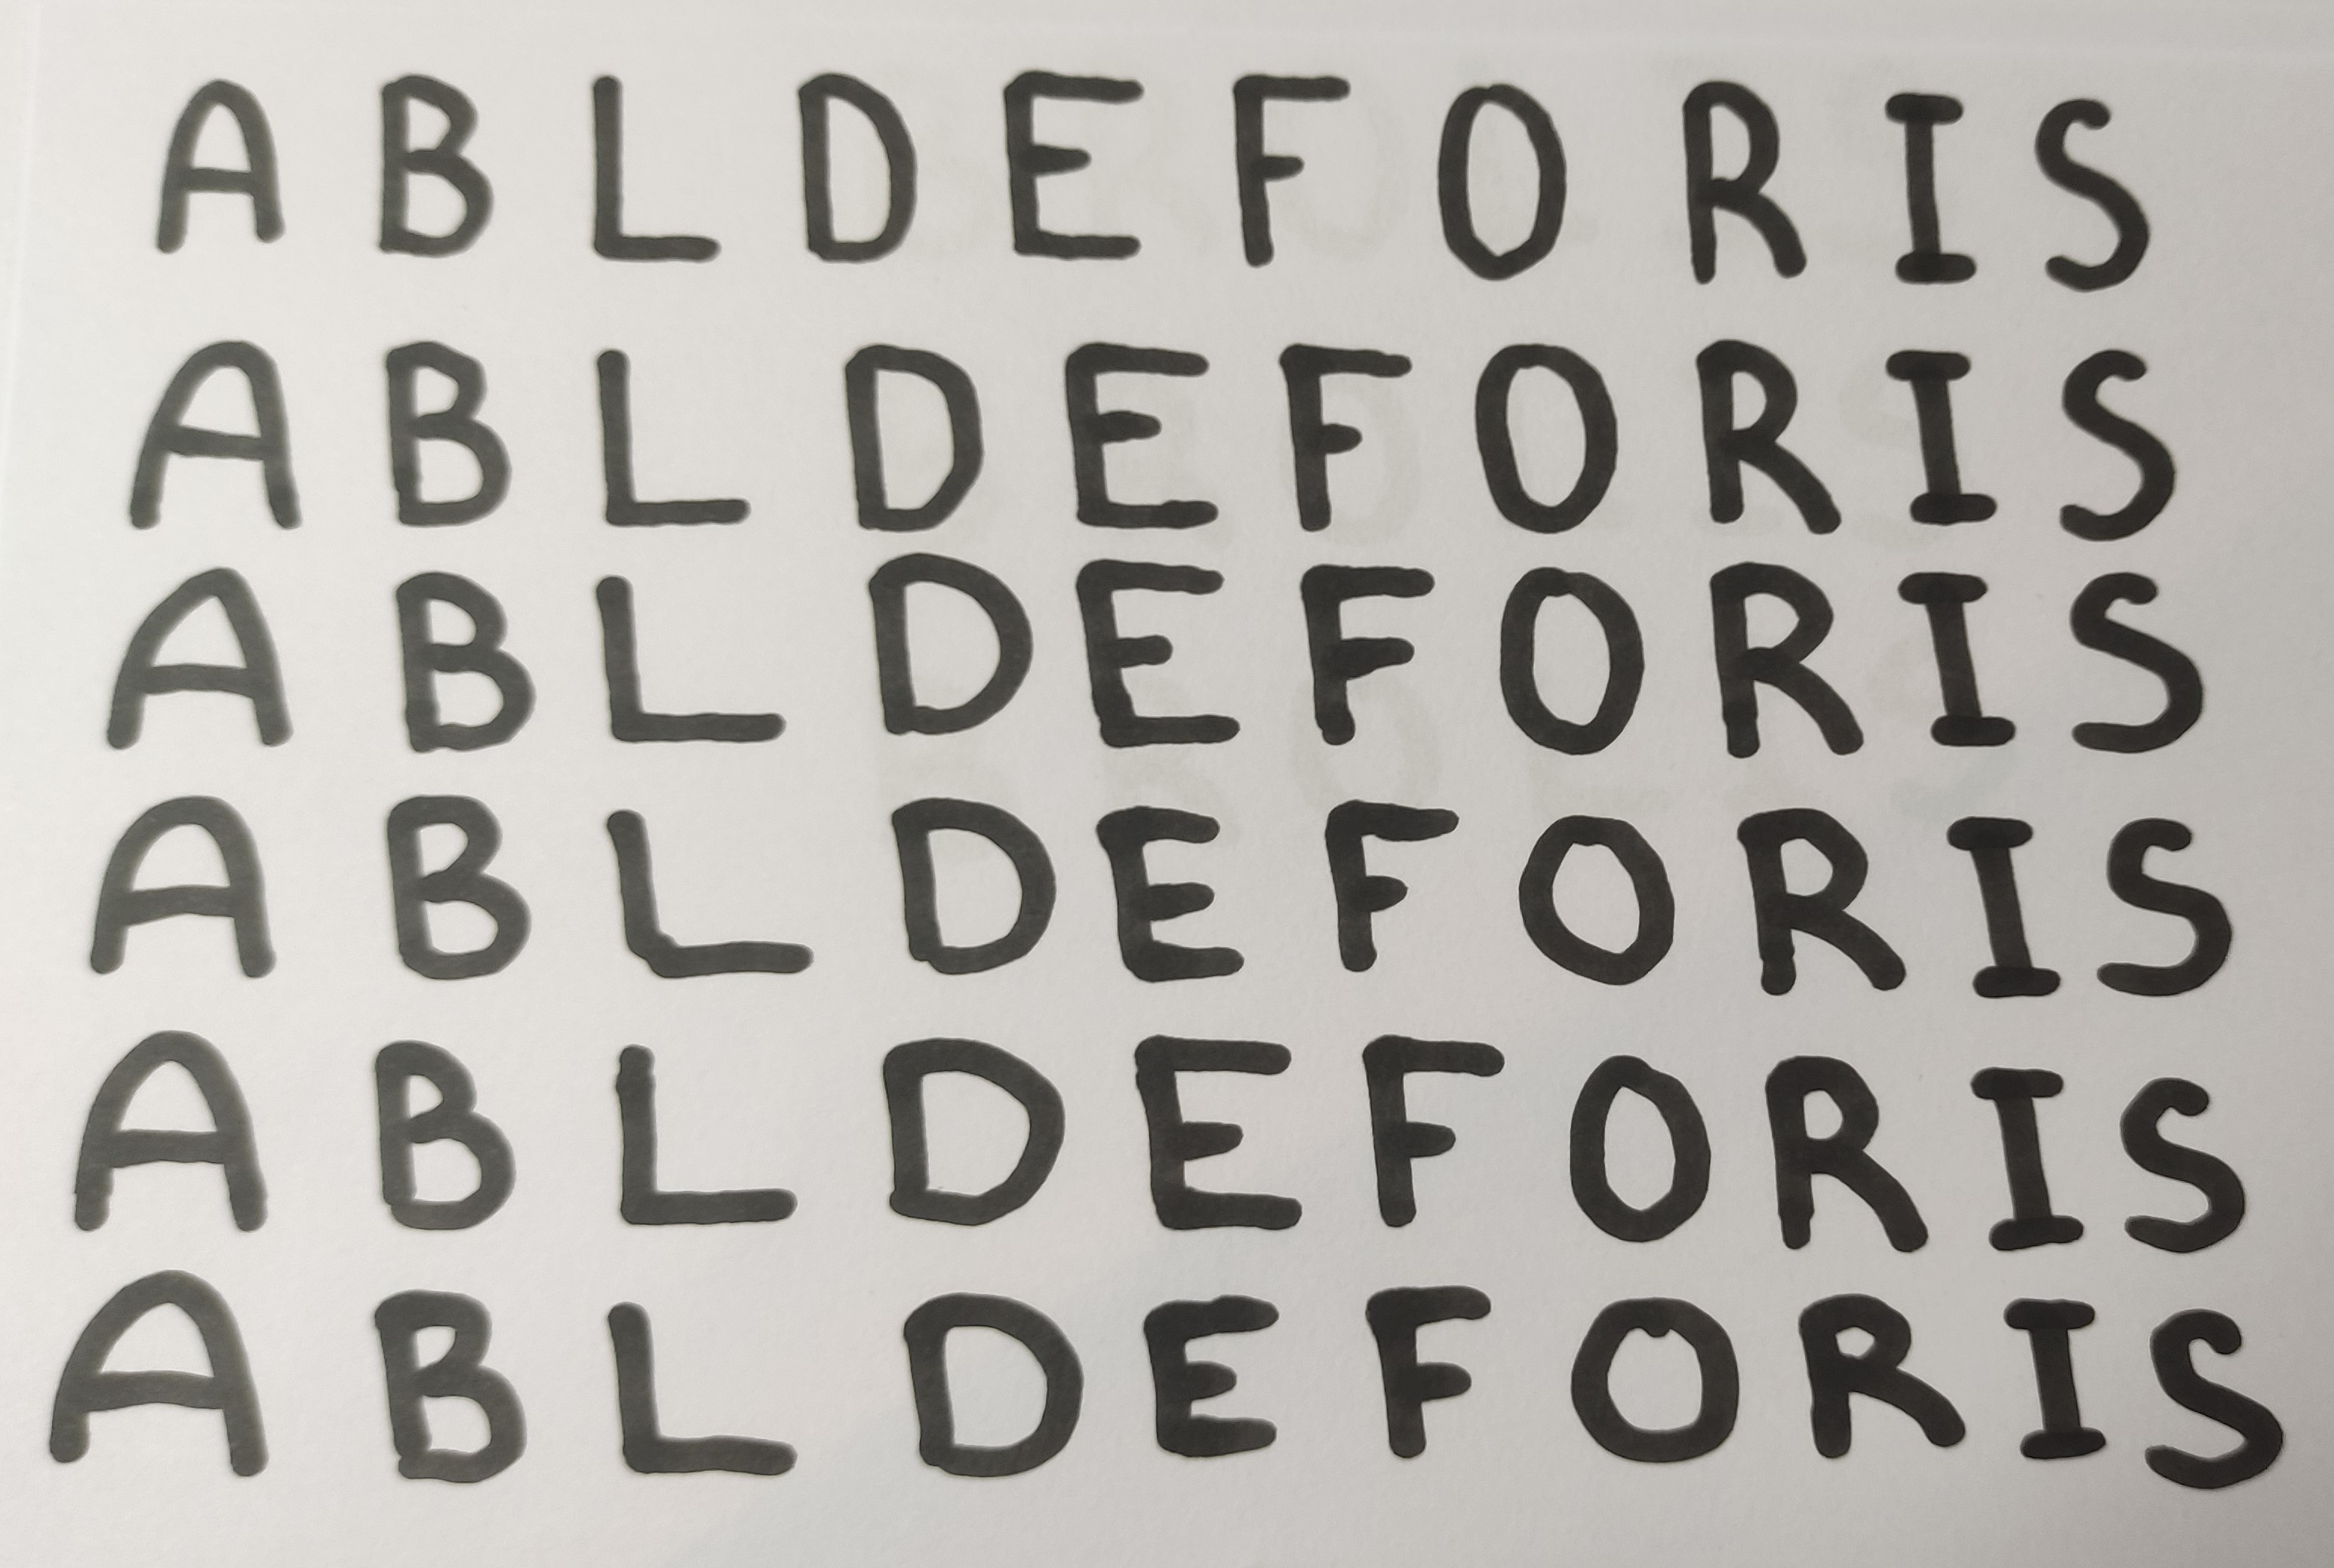 A B L D E F O R I S
A B L D E F O R I S
A B L D E F O R I S
A B L D E F O R I S
A B L D E F O R I S
A B L D E F O R I S